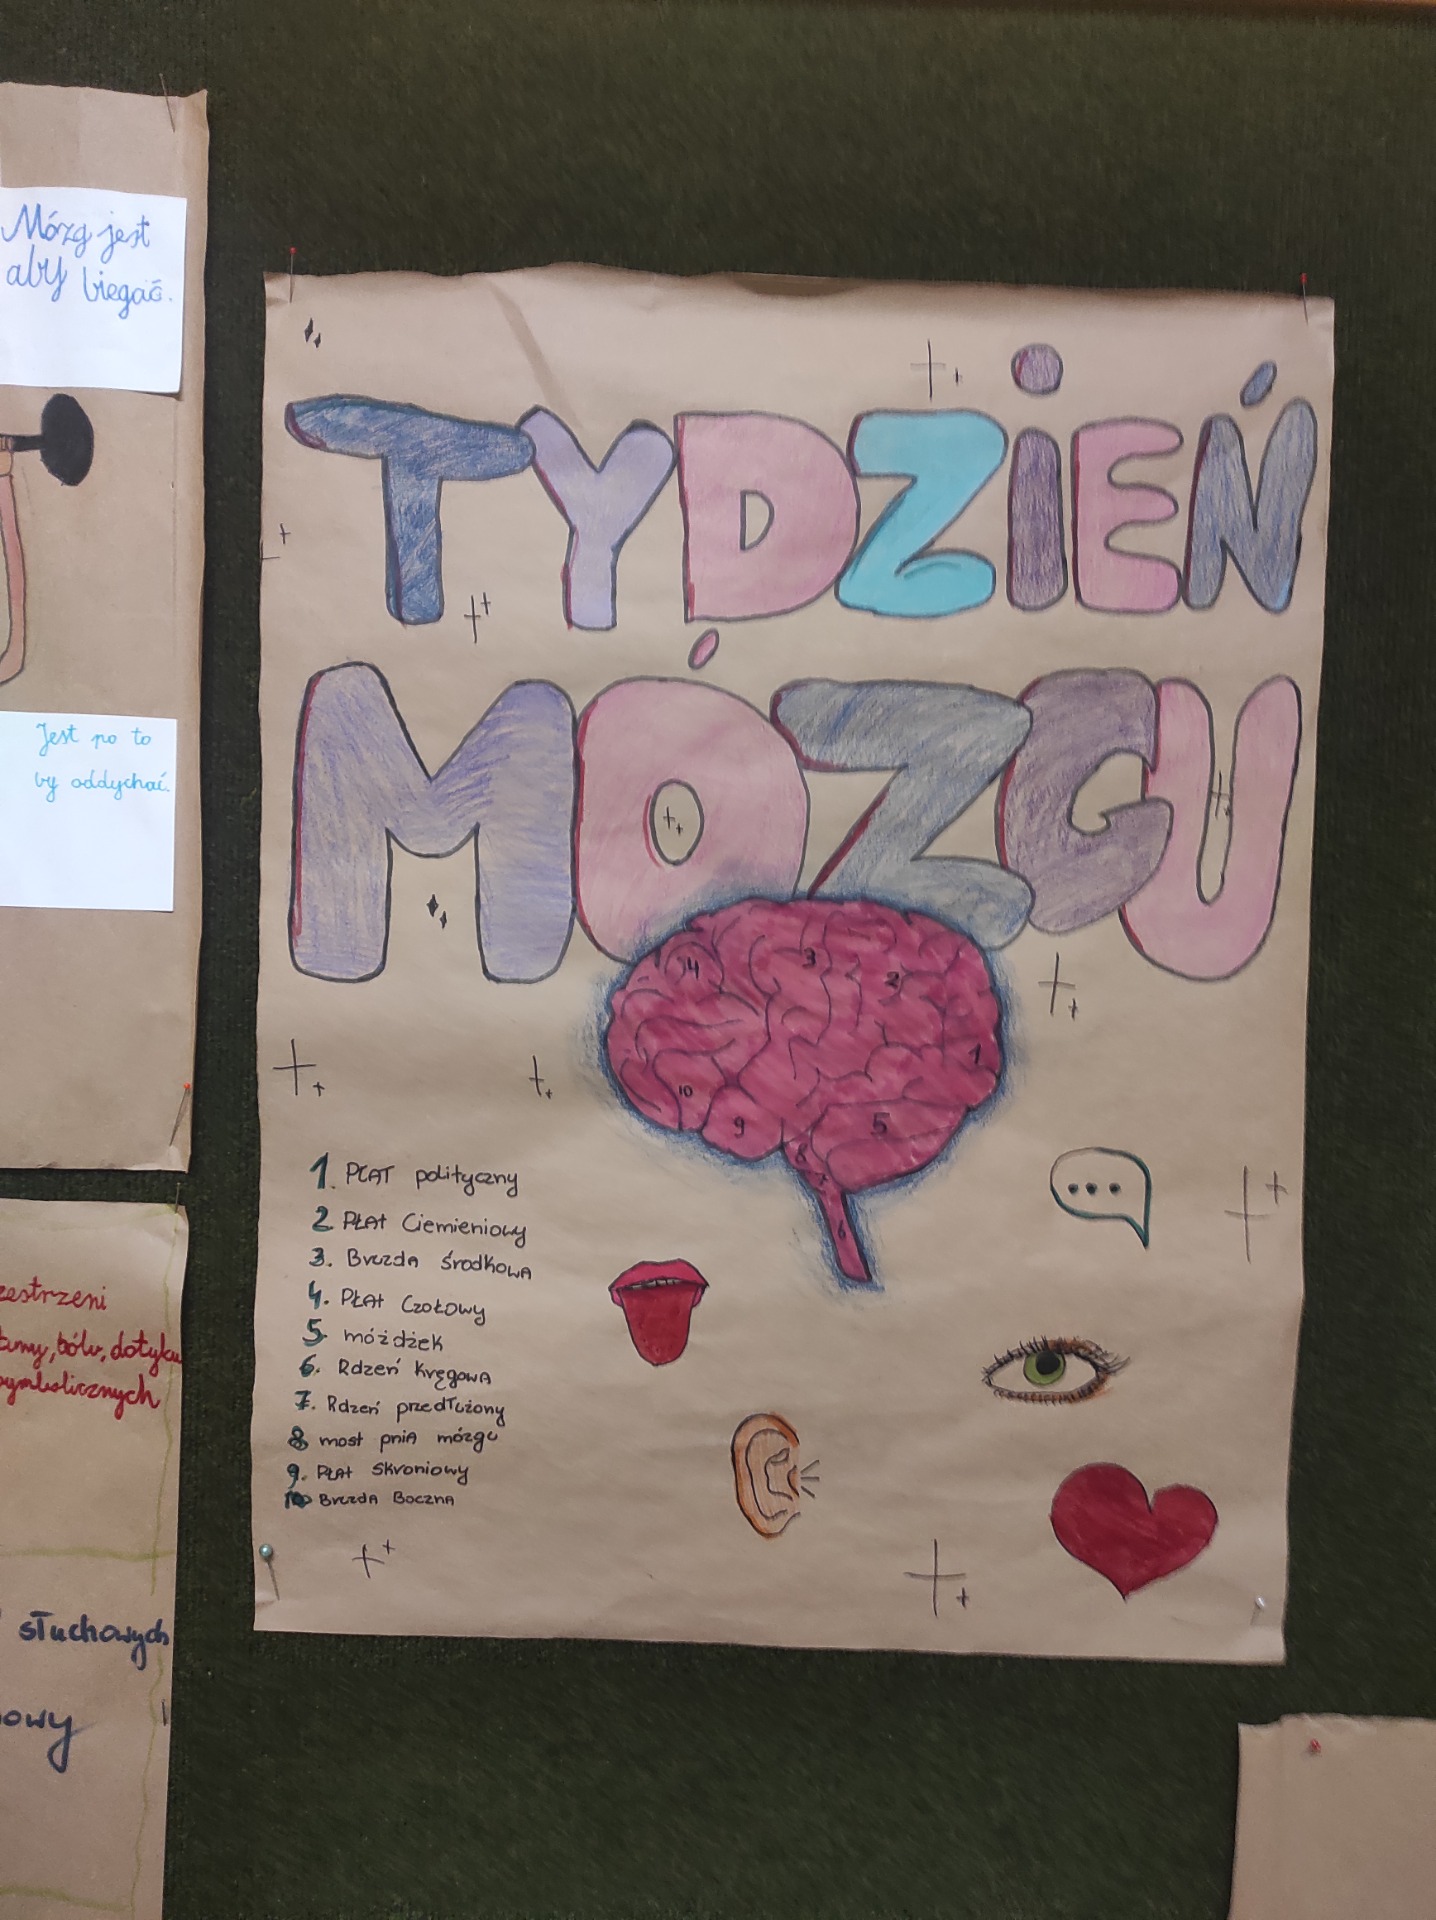 Mózg jest
aby biegać.
Jest po to
by oddychać.
zestrzeni
bólu, dotyku
symbolicznych
słuchowych
owy
TYDZIEŃ
MÓZGU
4
3
2
1
10
9
5
8
7
6
1. PŁAT polityczny
2 PŁAt Ciemieniowy
3. Bruzda środkowa
4. PŁAt Czołowy
5 móżdżek
6. Rdzeń kręgowa
7. Rdzeń przedłużony
8 most pnia mózgu
9. PŁAt Skroniowy
10 Bruzda Boczna